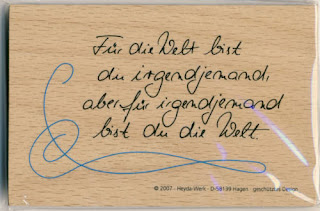 Für die Welt bist
du irgendjemand,
aber für irgendjemand
bist du die Welt.
© 2007 - Heyda-Werk - D-58139 Hagen - geschütztes Design